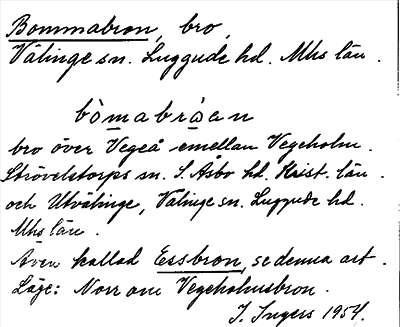 Bommabron, bro,
Välinge sn. Luggude hd. Mhs län.
bòmabråan
bro över Vegeå emellan Vegeholm.
Strövelstorps sn. S. Åsbo hd. Krist. län.
och Utvälinge, Välinge sn. Luggude hd.
Mhs län.
Även kallad Essbron, se denna art.
Läge: Norr om Vegeholmsbron.
I. Ingers 1954.